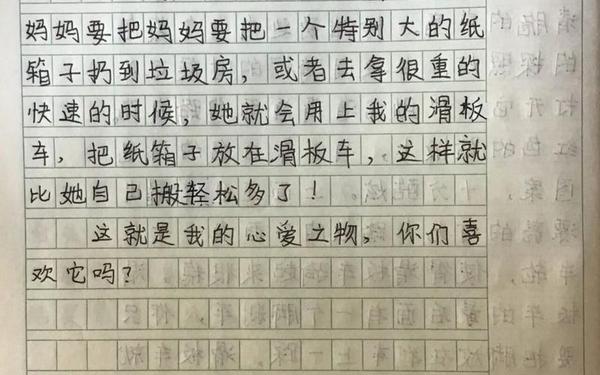 妈妈要把妈妈要把一个特别大的纸
箱子扔到垃圾房，或者去拿很重的
快速的时候，她就会用上我的滑板
车，把纸箱子放在滑板车，这样就
比她自己搬轻松多了！
这就是我的心爱之物，你们喜
欢它吗？